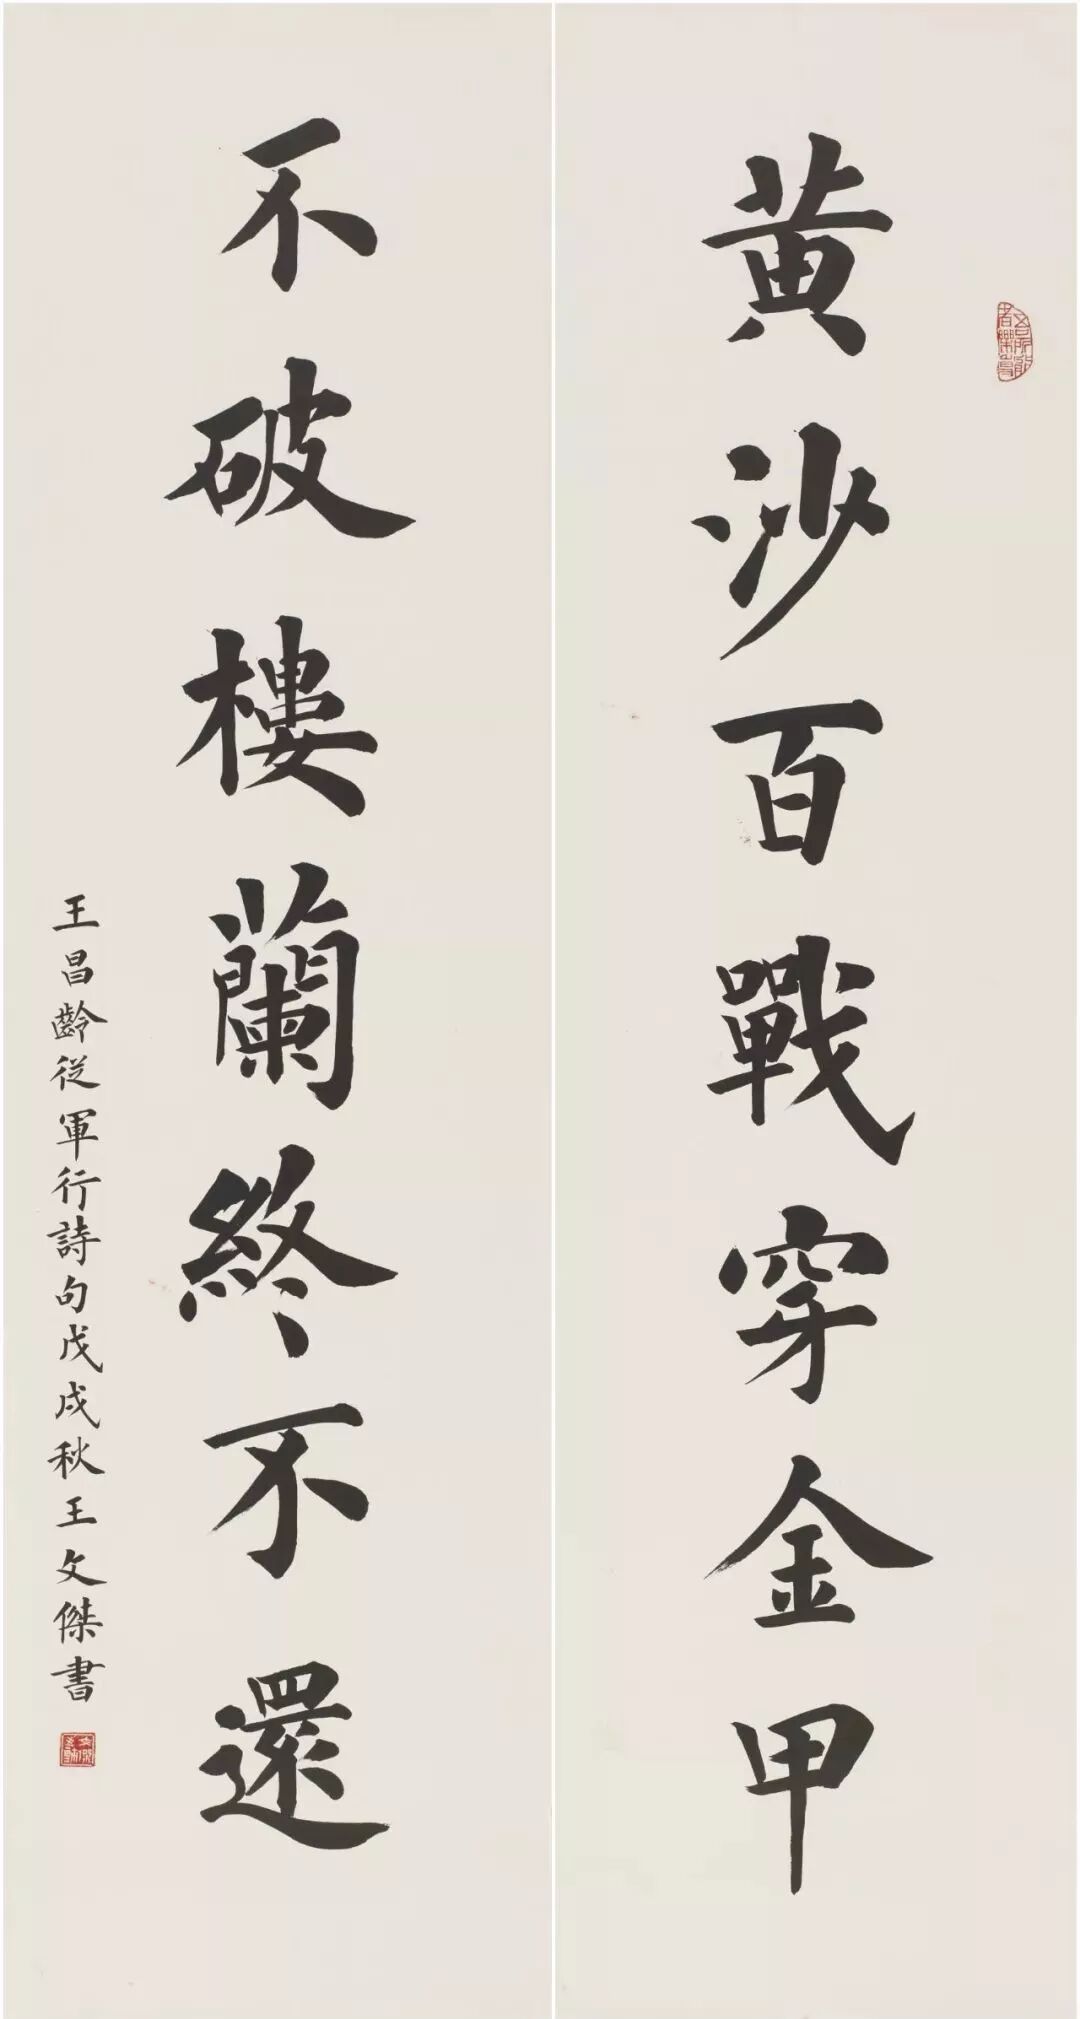 黄沙百戰穿金甲
不破樓蘭終不還
王昌齡從軍行詩句戊戌秋王文傑書